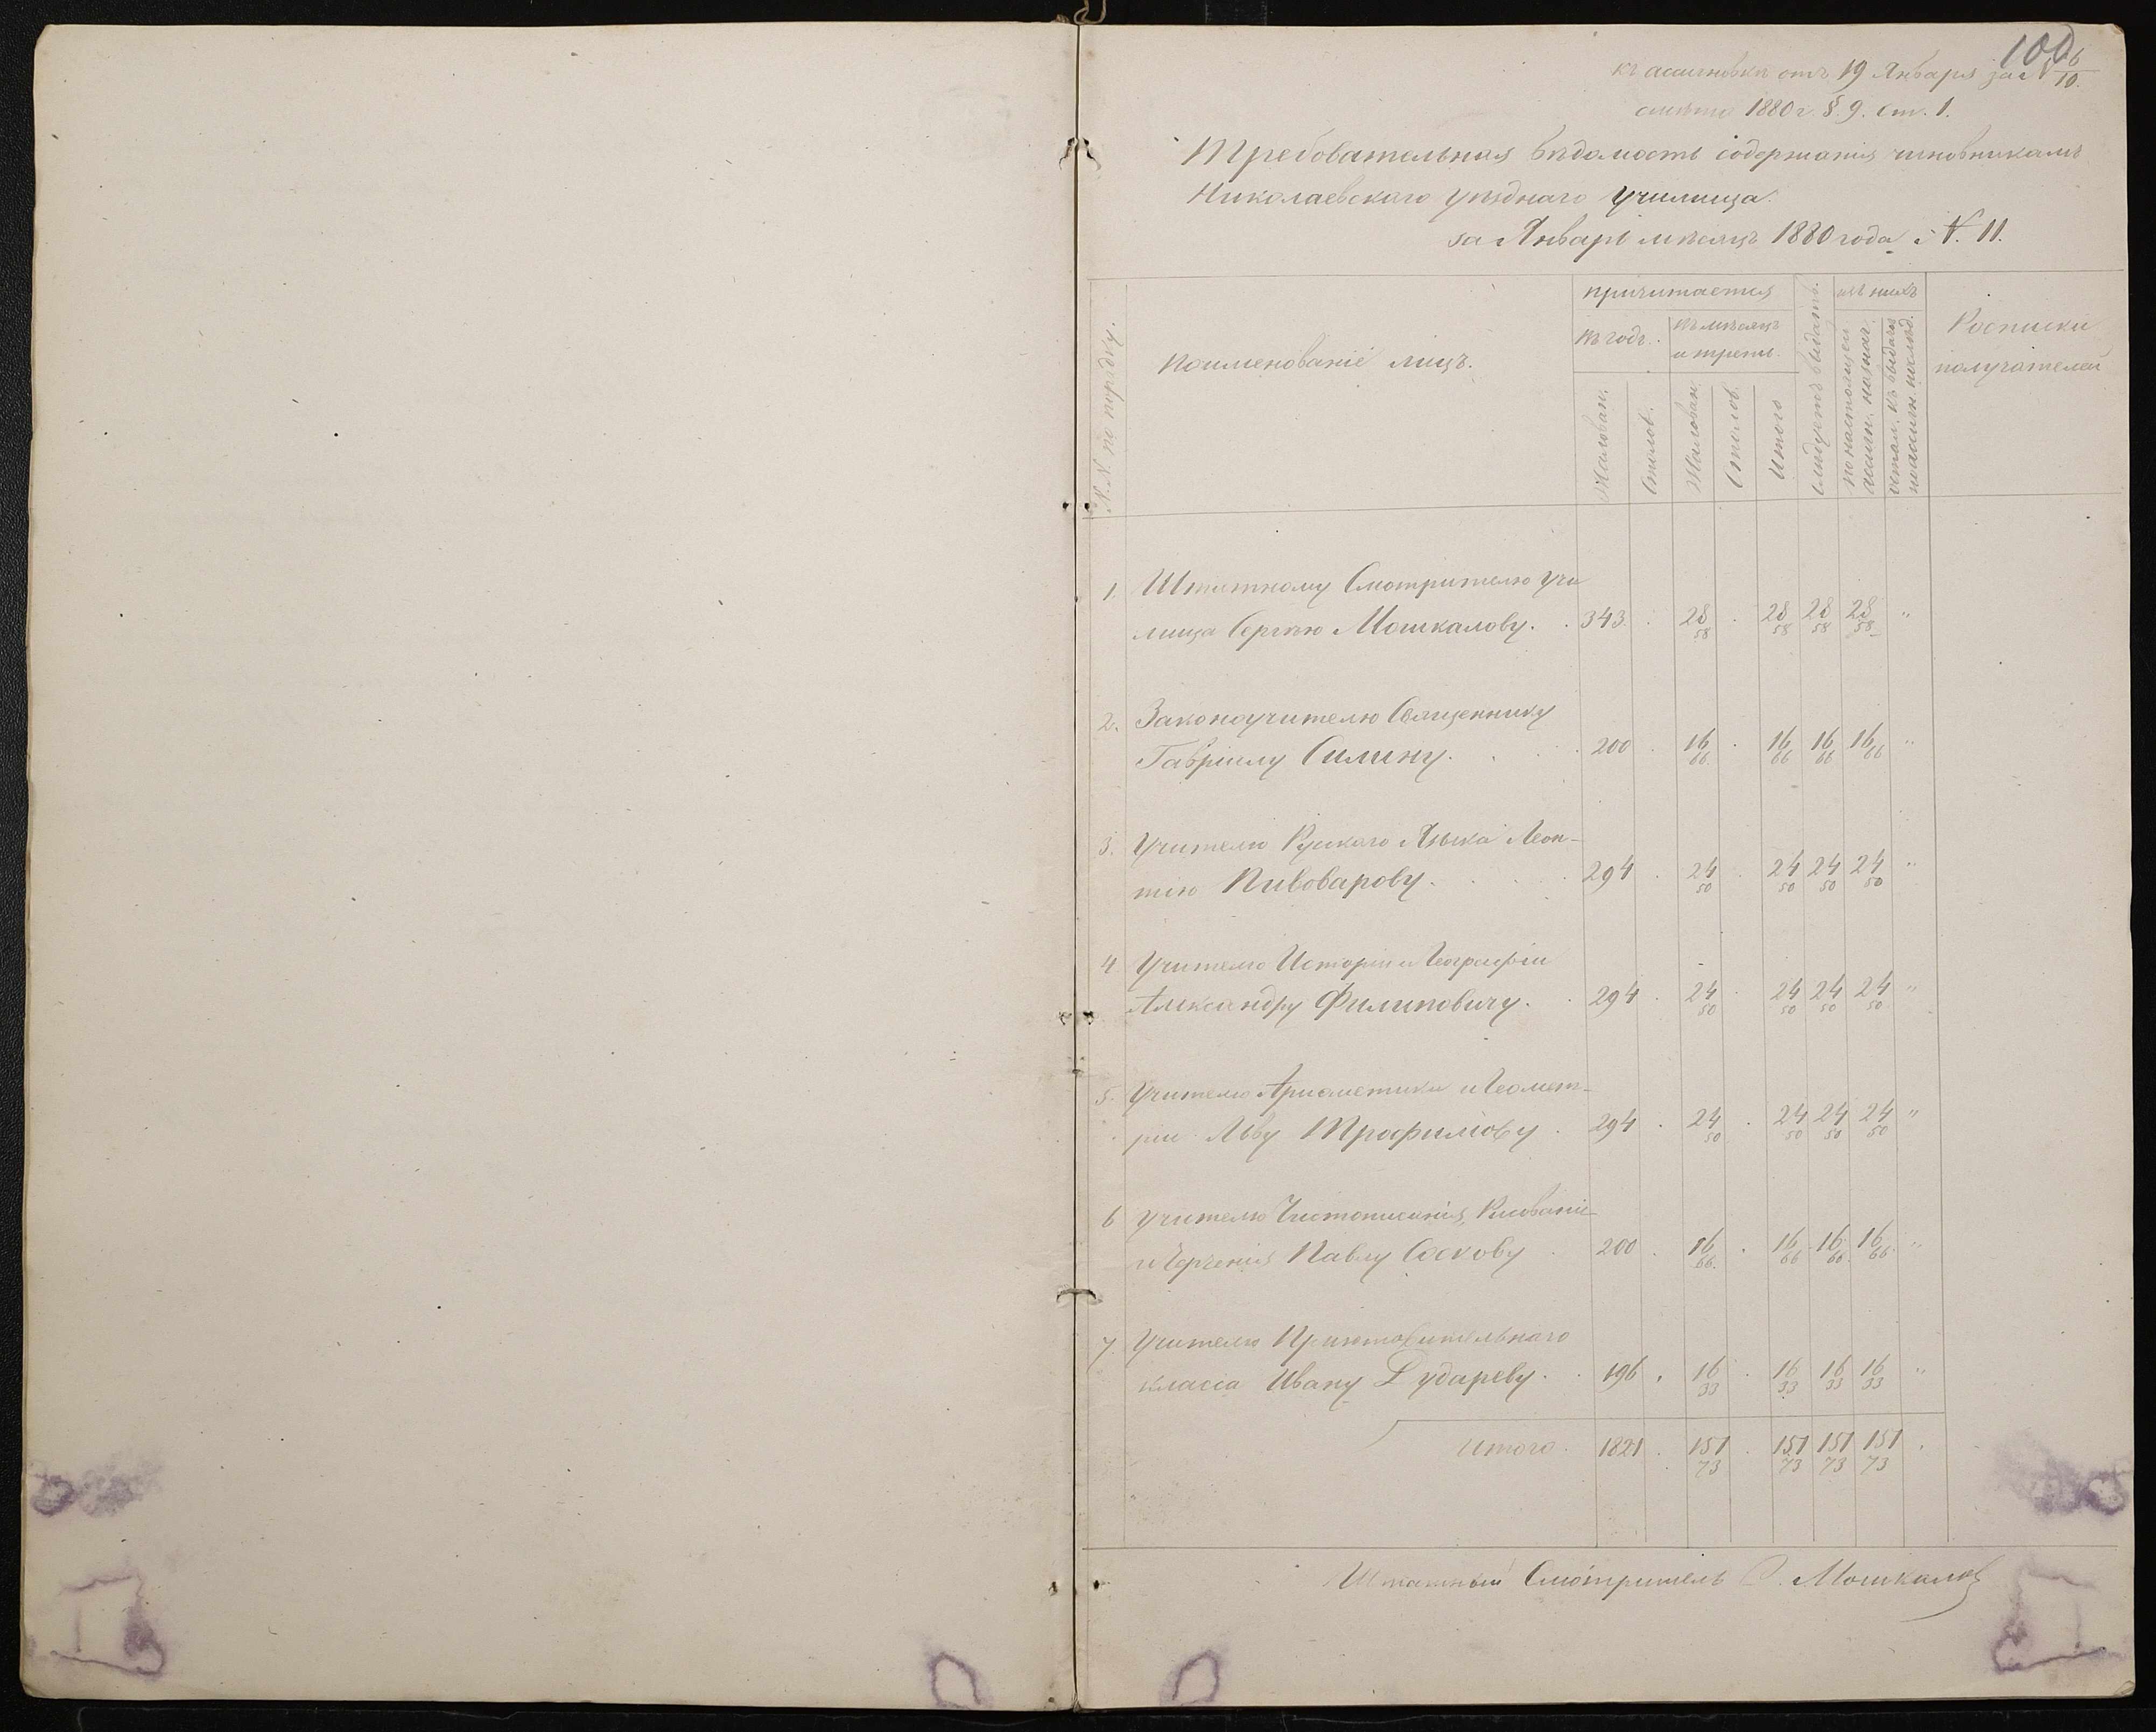 100
къ ассигновкѣ отъ 19 Января за № 6/10.
смѣта 1880 г. §. 9. ст. 1.
Требовательная вѣдомость содержанія чиновникамъ
Николаевскаго уѣзднаго училища.
за Январь мѣсяцъ 1880 года. № 11.
№.№. по порядку.
Поименованіе лицъ.
причитается
въ годъ.
въ мѣсяцъ
и треть.
Жалован.
Столов.
Жалован.
Столов.
Итого
Слѣдуетъ выдать.
изъ нихъ
по настоящей
ассигн. назнач.
остал. къ выдачѣ
по ассигн. послѣд.
Росписки
получателей
1. Штатному Смотрителю учи
лища Сергѣю Мошкалову. 343. 28 58 28 58 28 58 28 58 "
2. Законоучителю Священнику
Гавріилу Силину. 200 16 66 16 66 16 66 16 66 "
3. Учителю Рускаго Языка Леон-
тію Пивоварову. 294 24 50 24 50 24 50 24 50 "
4. Учителю Исторіи и Географіи
Александру Филиповичу. 294 24 50 24 50 24 50 24 50 "
5. Учителю Ариѳметики и Геомет-
ріи Льву Трофимову 294 24 50 24 50 24 50 24 50 "
6 Учителю Чистописанія, Рисованіе
и Черченія Павлу Соскову 200 16 66 16 66 16 66 16 66 "
7. Учителю Приготовительнаго
класса Ивану Дудареву. 196 16 33 16 33 16 33 16 33 "
Итого. 1821 151 73 151 73 151 73 151 73
Штатный Смотритель С. Мошкалов